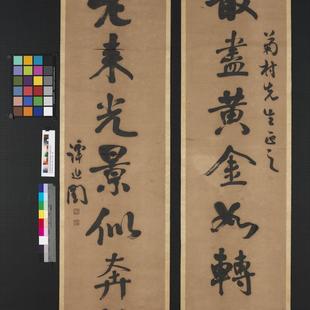 菊村先生正之
散盡黃金如轉
老來光景似奔
譚延闓